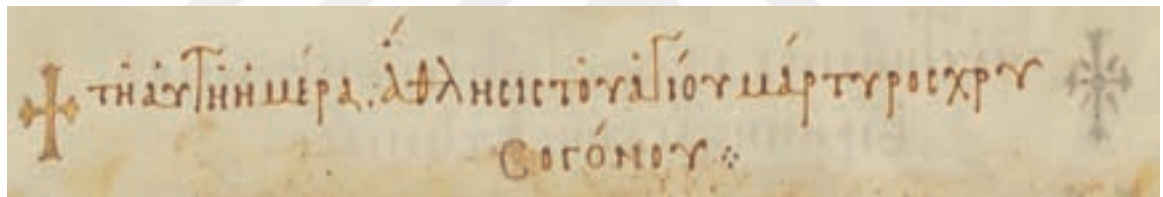 τῆ αὐτῆ ἡμέρα. ἄθλησις τοῦ ἁγίου μάρτυρος χρυ
σογόνου ⁘